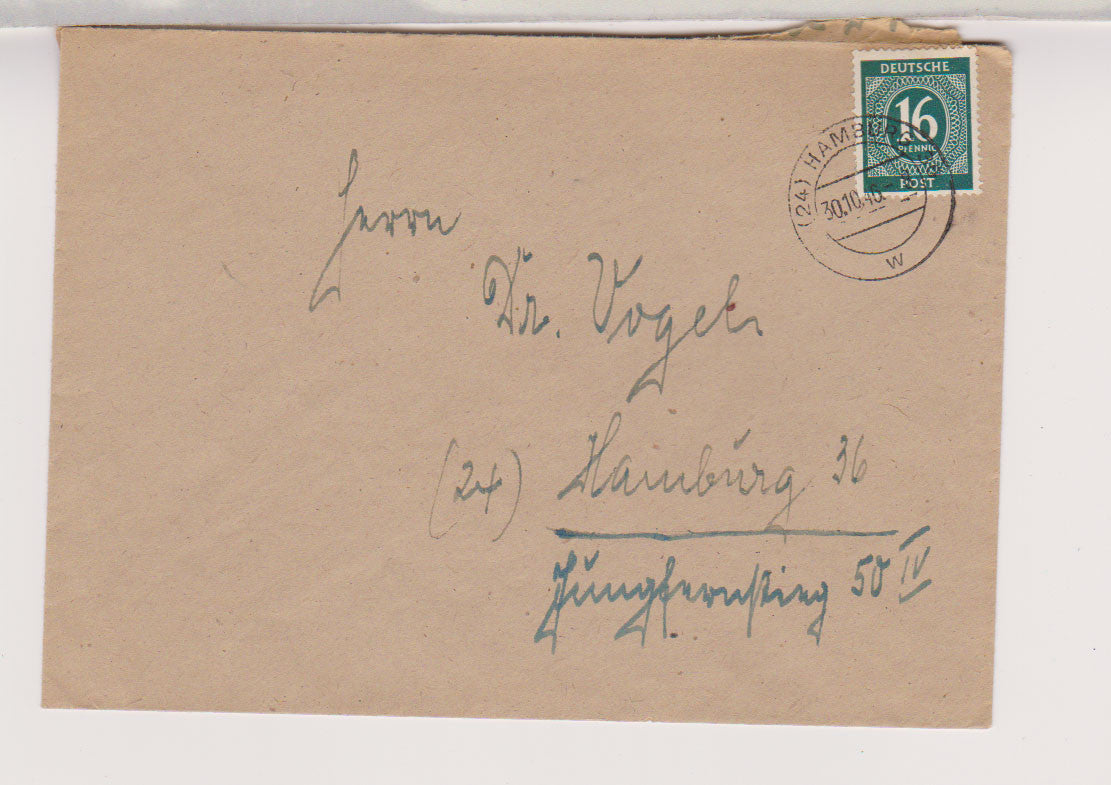 DEUTSCHE
16
PFENNIG
POST
(24) HAMBURG
30.10.46.-
w
Herrn
Dr. Vogel.
(24) Hamburg 36
Jungfernstieg 50 IV